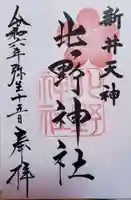 新井天神
北野神社
令和六年弥生十五日
奉拝